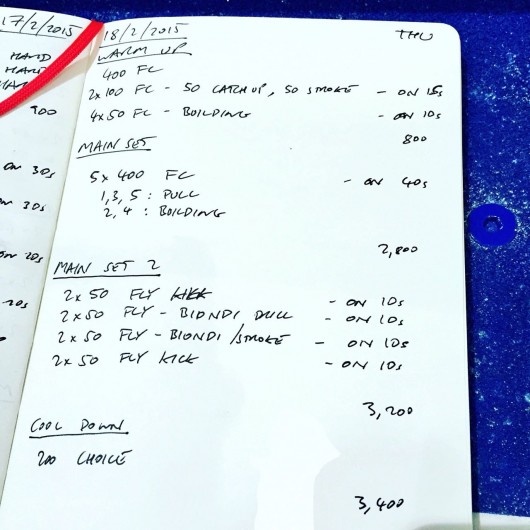 17/2/2015
HAND
HARD
900
ON 30s
ON 30s
ON 20s
20s
18/2/2015 THU
WARM UP
400 FC
2x100 FC - 50 CATCH UP, 50 STROKE - ON 15s
4x50 FC - BUILDING - ON 10s
800
MAIN SET
5x400 FC - ON 40s
1,3,5 : PULL
2,4 : BUILDING
2,800
MAIN SET 2
2x50 FLY - ON 10s
2x50 FLY - BIONDI DRILL - ON 10s
2x50 FLY - BIONDI/STROKE - ON 10s
2x50 FLY KICK - ON 10s
3,200
COOL DOWN
200 CHOICE
3,400